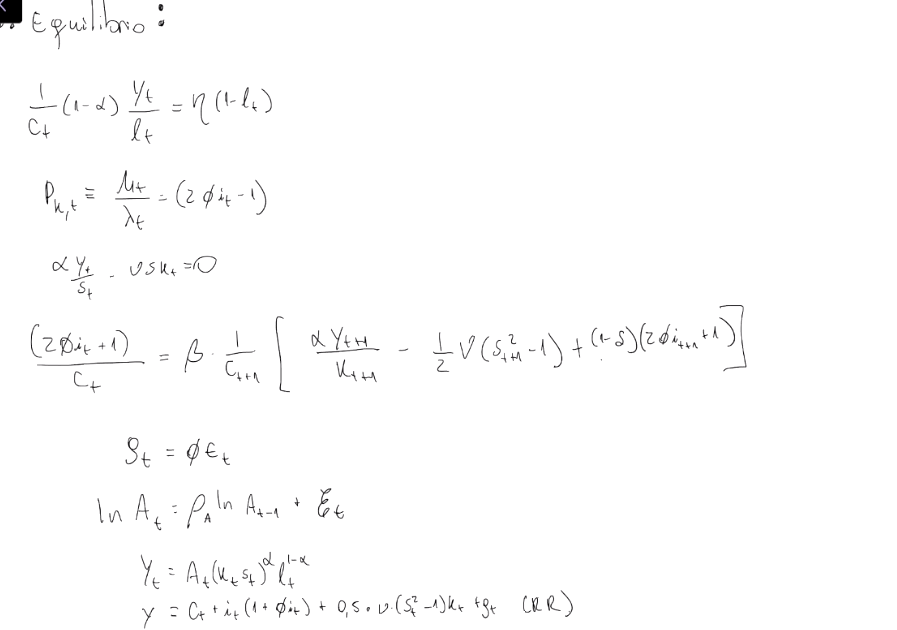 Equilibrio:
1/C_t (1-α) Y_t/l_t = η(1-l_t)
P_{k,t} ≡ μ_t/λ_t = (2φi_t - 1)
α Y_t/s_t - νsk_t = 0
(2φi_t + 1)/C_t = β · 1/C_{t+1} [ αY_{t+1}/K_{t+1} - 1/2 ν(s²_{t+1} - 1) + (1-δ)(2φi_{t+1} + 1) ]
g_t = φε_t
ln A_t = ρ_A ln A_{t-1} + ε_t
Y_t = A_t(k_t s_t)^α l_t^{1-α}
Y = C_t + i_t(1 + φi_t) + 0,5 · ν · (s_t² - 1)k_t + g_t (RR)